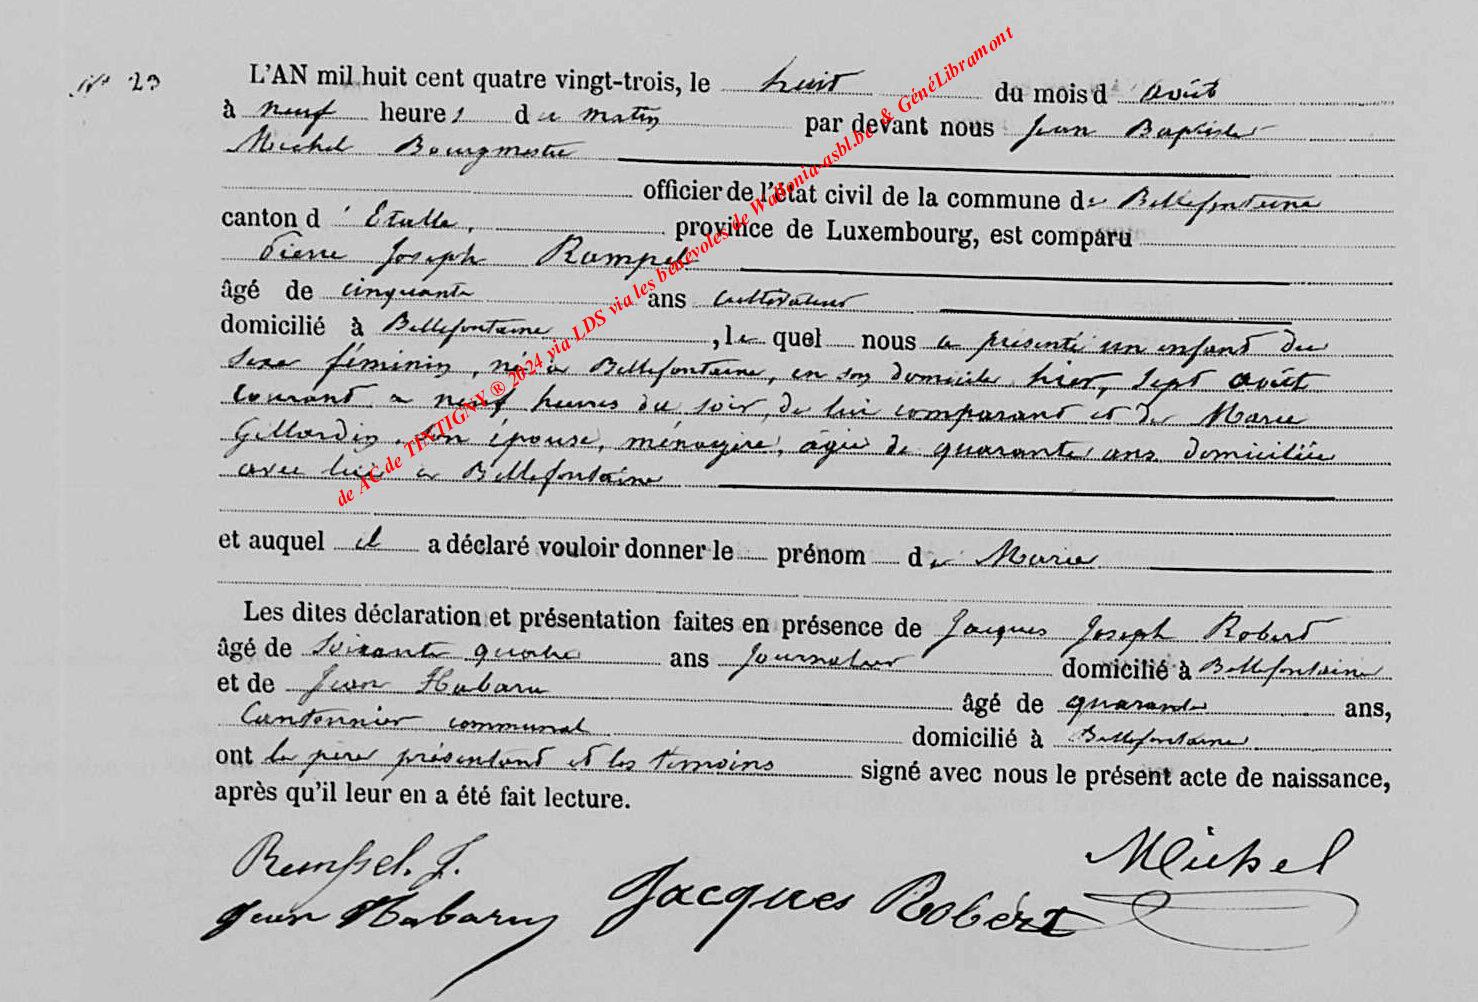 N° 23
L'AN mil huit cent quatre vingt-trois, le huit du mois d'août
à neuf heures du matin par devant nous Jean Baptiste
Michel Bourgmestre
officier de l'état civil de la commune de Bellefontaine
canton d'Etalle, province de Luxembourg, est comparu
Pierre Joseph Rompel
âgé de cinquante ans cultivateur
domicilié à Bellefontaine, le quel nous a présenté un enfant du
sexe féminin, né à Bellefontaine, en son domicile hier, sept août
courant a neuf heures du soir, de lui comparant et de Marie
Gillardin, son épouse, ménagère, agée de quarante ans domiciliée
avec lui à Bellefontaine
et auquel il a déclaré vouloir donner le prénom de Marie
Les dites déclaration et présentation faites en présence de Jacques Joseph Robert
âgé de soixante quatre ans Journalier domicilié à Bellefontaine
et de Jean Habaru âgé de quarante ans,
Cantonnier communal domicilié à Bellefontaine
ont le père présentant et les témoins signé avec nous le présent acte de naissance,
après qu'il leur en a été fait lecture.
Rompel. J. Michel
Jean Habaru Jacques Robert
de AC de TINTIGNY ® 2024 via LDS via les bénévoles de Wallonia-asbl.be & GénéLibramont